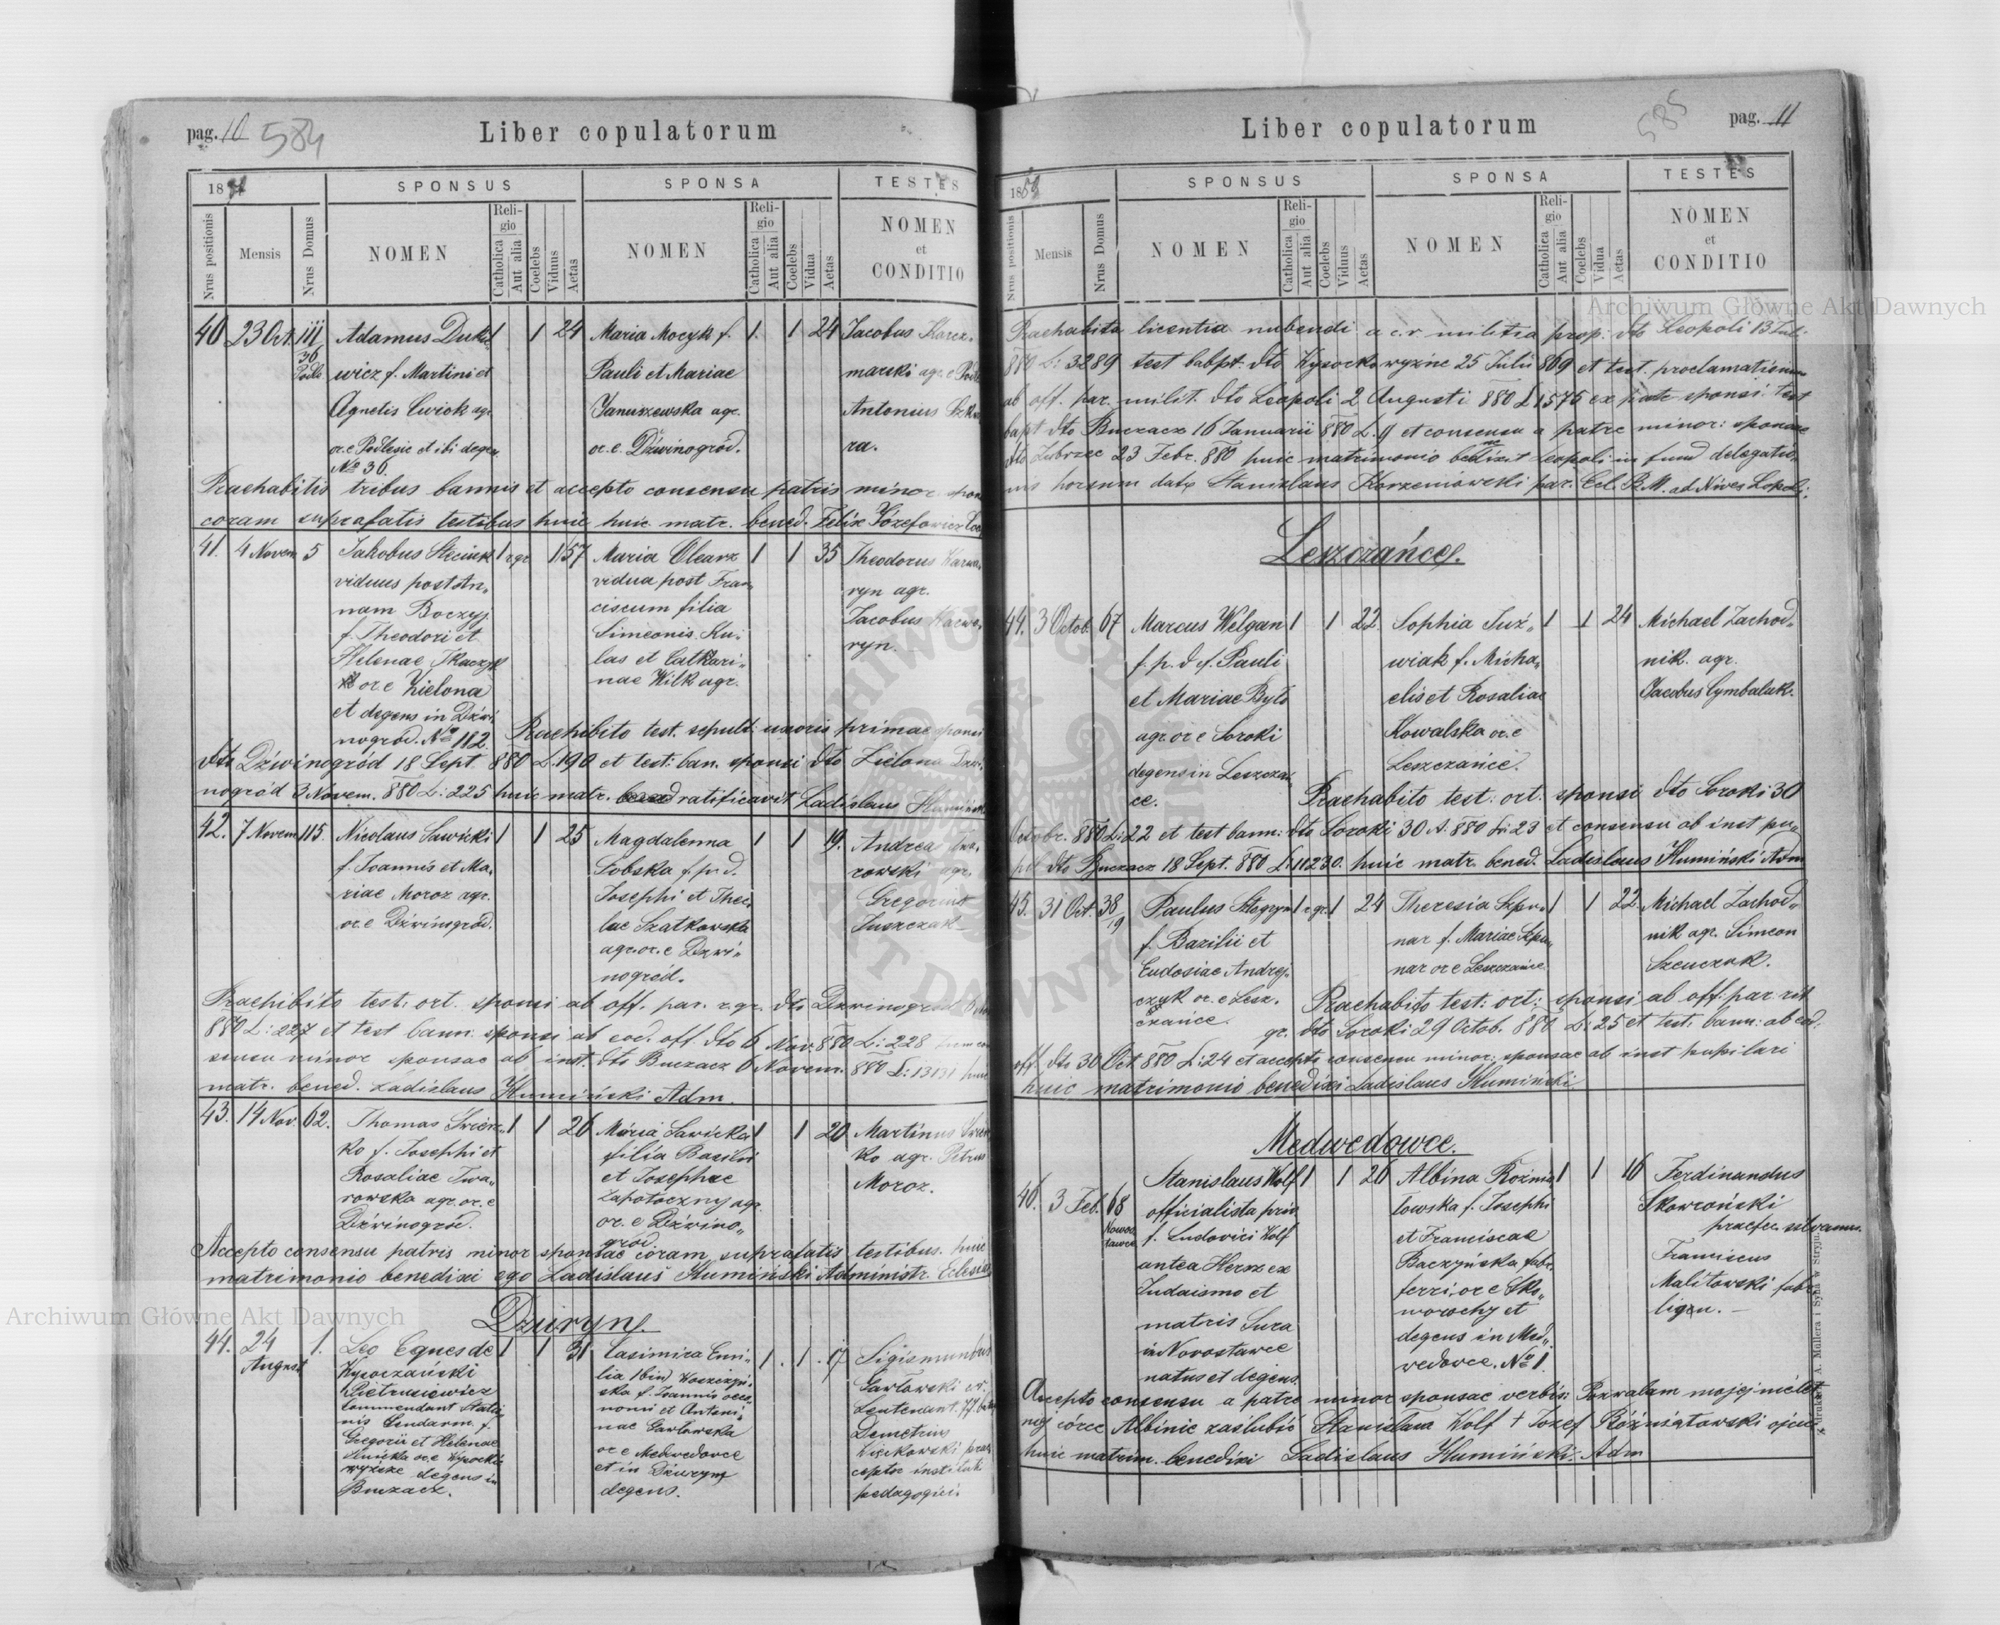 pag. 10 584
Liber copulatorum
18
SPONSUS SPONSA TESTES
Nrus positionis Mensis Nrus Domus NOMEN Religio Catholica Aut alia Coelebs Viduus Aetas NOMEN Religio Catholica Aut alia Coelebs Vidua Aetas NOMEN et CONDITIO
40 23 Oct. 111 Adamus Duke 1 1 24 Maria Mocyk f. 1. 1 24 Jacobus Karcz
36 Podle wicz f. Martini et Pauli et Mariae marski agr. e Podle
Agnetis Cwiok agr. Januszewska agr. Antonius
or. e Podlesie et ibi degen. or. e. Dźwinogród. ra.
No 36.
Praehabitis tribus bannis et accepto consensu patris minor. spon
coram suprafatis testibus huic huic matr. bened. Felix Józefowicz
41. 4 Novem 5 Jakobus Steciuk 1 r.gr. 1 57 Maria Olearz 1 1 35 Theodorus Karwa
viduus post An, vidua post Fran ryn agr.
nam Boczyj ciscum filia Jacobus Karwa
f. Theodori et Simeonis Ku, ryn.
Helenae Tkaczyk las et Cathari,
or e Zielona nae Wilk agr.
et degens in Dźwi
nogród. No 112. Praehibito test. sepult. uxoris primae sponsi
dto Dźwinogród 18 Sept. 880 L. 190 et test. ban. sponsi dto Zielona Dzwi
nogród 3 Novem. 880 L: 225 huic matr. ratificavit Ladislaus Humiński
42. 7 Novem 115. Nicolaus Sawicki 1 1 25 Magdalenna 1 1 19. Andrea
f. Joannis et Ma, Sobska f. p. d. rowski agr.
riae Moroz agr. Josephi et Thec, Gregorius
or. e Dźwinogród. lae Szatkowska Juszczak
agr. or. e Dzwi,
nogród.
Praehibito test. ort. sponsi ab off. par. r. gr. dto Dźwinogród 6
880 L: 227 et test bann. sponsi ab eod. off. dto 6 Nov. 880 L: 228
sensu minor sponsae ab inst. dto Buczacz 6 Novem. 880 L: 13131 huic
matr. bened. Ladislaus Humiński Adm.
43. 14 Nov. 62. Thomas 1 1 26 Maria Sawicka 1 1 20 Martinus
ko f. Josephi et filia Basilii ko agr. Petrus
Rosaliae Twa, et Josephae Moroz.
rowska agr. or. e Zapotoczny agr.
Dźwinogród. or. e Dźwino,
gród.
Accepto consensu patris minor sponsae coram suprafatis testibus. huic
matrimonio benedixi ego Ladislaus Humiński Administr. Eclesiae
Dżuryn.
44. 24 1. Leo Eques de 1 1 31 Casimira Emi, 1. 1. 17 Sigismundus
August Wysoczański lia Gawłowski
Pietrusiewicz ska f. Joannis Leutenant. 77
Commendant Statio, nomi et Antoni, Demetrius
nis Gendarm. f. nae Gawłowska Więckowski prae
Gregorii et Helenae or e Medwedowce ceptor instituti
or. e Wysocko et in Dżuryn pedagogici.
wyżne degens in degens.
Buczacz.
585 pag. 11
Liber copulatorum
18
SPONSUS SPONSA TESTES
Nrus positionis Mensis Nrus Domus NOMEN Religio Catholica Aut alia Coelebs Viduus Aetas NOMEN Religio Catholica Aut alia Coelebs Vidua Aetas NOMEN et CONDITIO
Praehabita licentia nubendi a c. r. militia prop: dto Leopoli 13
880 L: 3289 test. babpt. dto Wysocko wyżne 25 Julii 869 et test. proclamationum
ab off. par. milit. dto Leopoli 2 Augusti 880 L 1575 ex parte sponsi. Test
bapt dto Buczacz 16 Januarii 880 L. 9 et consensu a patre minor: sponsae
dto Zubrzec 23 Febr. 880 huic matrimonio Leopoli in fund delegatio
nis horsum datae Stanislaus Korzeniowski par. Ecl. B. M. ad Nives Leopoli.
Leszczańce.
44. 3 Octob. 67 Marcus Welgan 1 1 22. Sophia Juź, 1 1 24 Michael Zachod,
f. p. d. f. Pauli wiak f. Micha, nik. agr.
et Mariae Byto elis et Rosaliae Jacobus Cymbaluk.
agr. or e Soroki Kowalska or. e
degens in Leszczań Leszczańce.
ce. Praehabito test: ort. sponsi dto Soroki 30
Octobr. 880 L: 22 et test bann: dto Soroki 30 880 L: 23 et consensu ab inst pu,
pil dto Buczacz 18 Sept. 880 L. 11230. huic matr. bened. Ladislaus Humiński Adm
45. 31 Oct. 38/19 Paulus Stegryn 1 r. gr. 1 24 Theresia Szpu, 1 1 22. Michael Zachod,
f. Bazilii et nar f. Mariae Szpu, nik agr. Simeon
Eudosiae Andrej, nar or e Leszczańce. Szewczuk.
czyk or. e Lesz,
czańce. Praehabito test: ort: sponsi ab off: par. rit
gr. dto Soroki 29 Octob. 880 L: 25 et test. bann: ab eod.
off. dto 30 Oct 880 L: 24 et accepto consensu minor: sponsae ab inst pupilari
huic matrimonio benedixi Ladislaus Humiński
Medwedowce.
46. 3 Feb. 68 Stanislaus Wolf 1 1 26 Albina Rożnia 1 1 16 Ferdinandus
officialista priv. towska f. Josephi Skowroński
f. Ludovici Wolf et Franciscae praefec. silvanus.
antea Hersz ex Baczyńska fabr. Franciscus
Judaismo et ferri, or e Sko, Malitowski fabr
matris Sura worochy et lign. —
in Nowostawce degens in Med,
natus et degens. wedowce. No 1.
Accepto consensu a patre minor sponsae verbis: Pozwalam mojej nielet
niej córce Albinie zaślubić Stanisława Wolf + Józef Rożniatowski ojciec
huic matrim. benedixi Ladislaus Humiński Adm
druk. A. Müllera i Syna w Stryju.
Archiwum Główne Akt Dawnych
Archiwum Główne Akt Dawnych